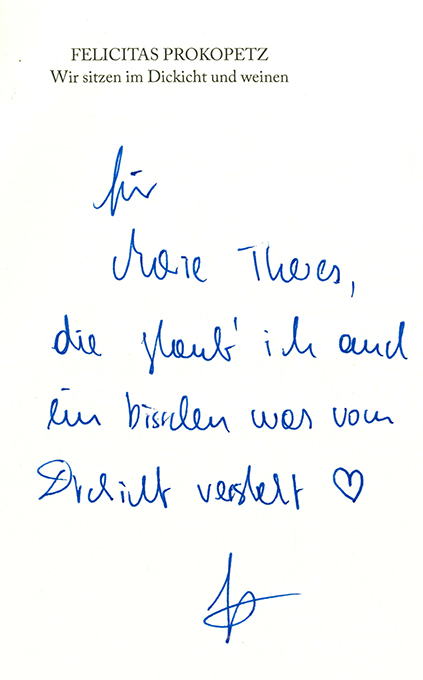 FELICITAS PROKOPETZ
Wir sitzen im Dickicht und weinen
für
Marie Theres,
die glaub' ich auch
ein bisschen was vom
Dickicht versteht ♡